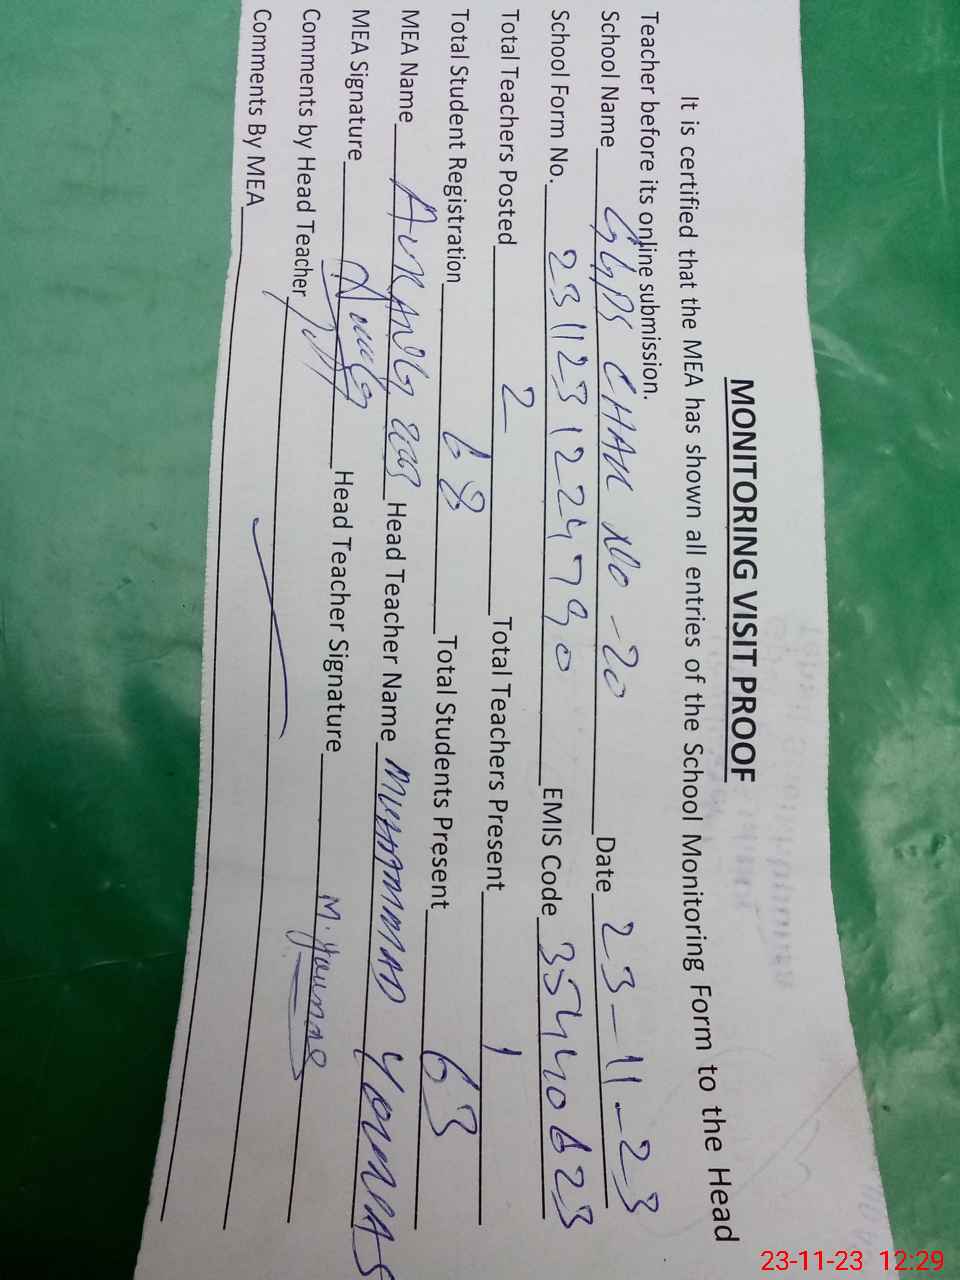 MONITORING VISIT PROOF
It is certified that the MEA has shown all entries of the School Monitoring Form to the Head
Teacher before its online submission.
School Name GGPS CHAK NO -20 Date 23-11-23
School Form No. 2311231224790 EMIS Code 35440623
Total Teachers Posted 2 Total Teachers Present 1
Total Student Registration 68 Total Students Present 63
MEA Name Head Teacher Name MUHAMMAD YOUNAS
MEA Signature Head Teacher Signature M. Younas
Comments by Head Teacher
Comments By MEA
23-11-23 12:29